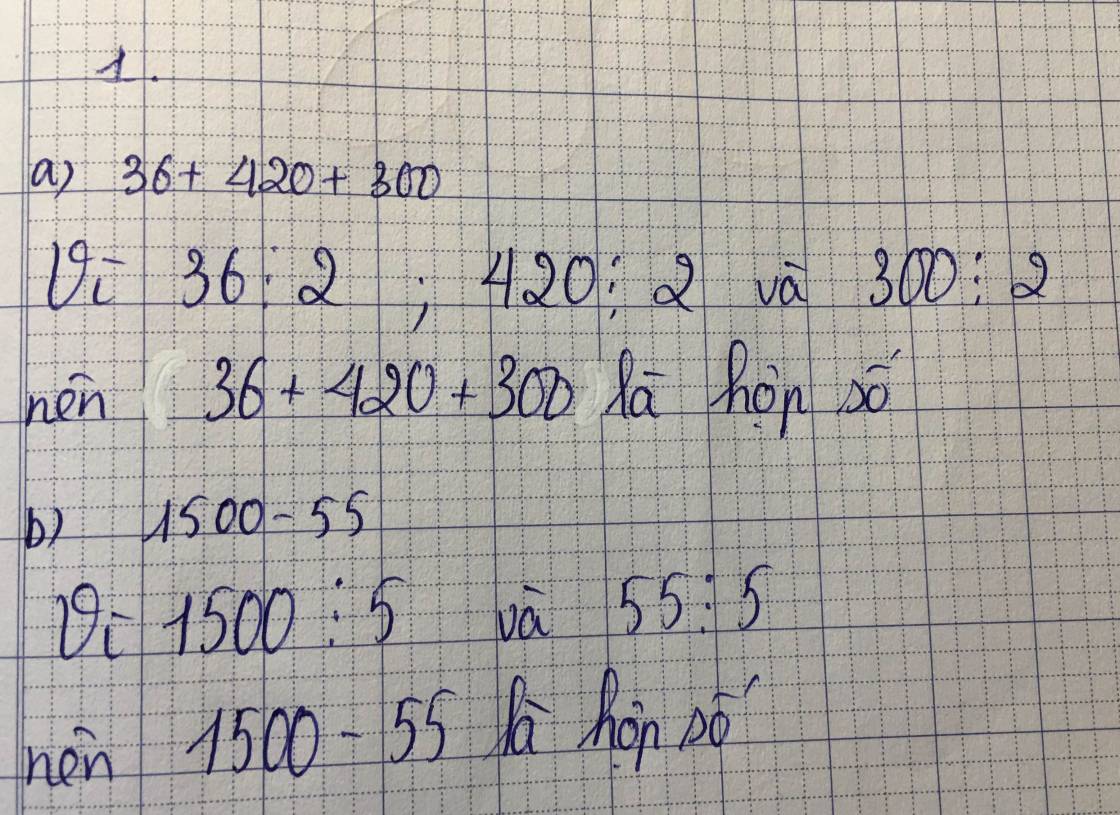 1.
a) 36 + 420 + 300
Vì 36 ⋮ 2 ; 420 ⋮ 2 và 300 ⋮ 2
nên ( 36 + 420 + 300 ) là hợp số
b) 1500 - 55
Vì 1500 ⋮ 5 và 55 ⋮ 5
nên 1500 - 55 là hợp số